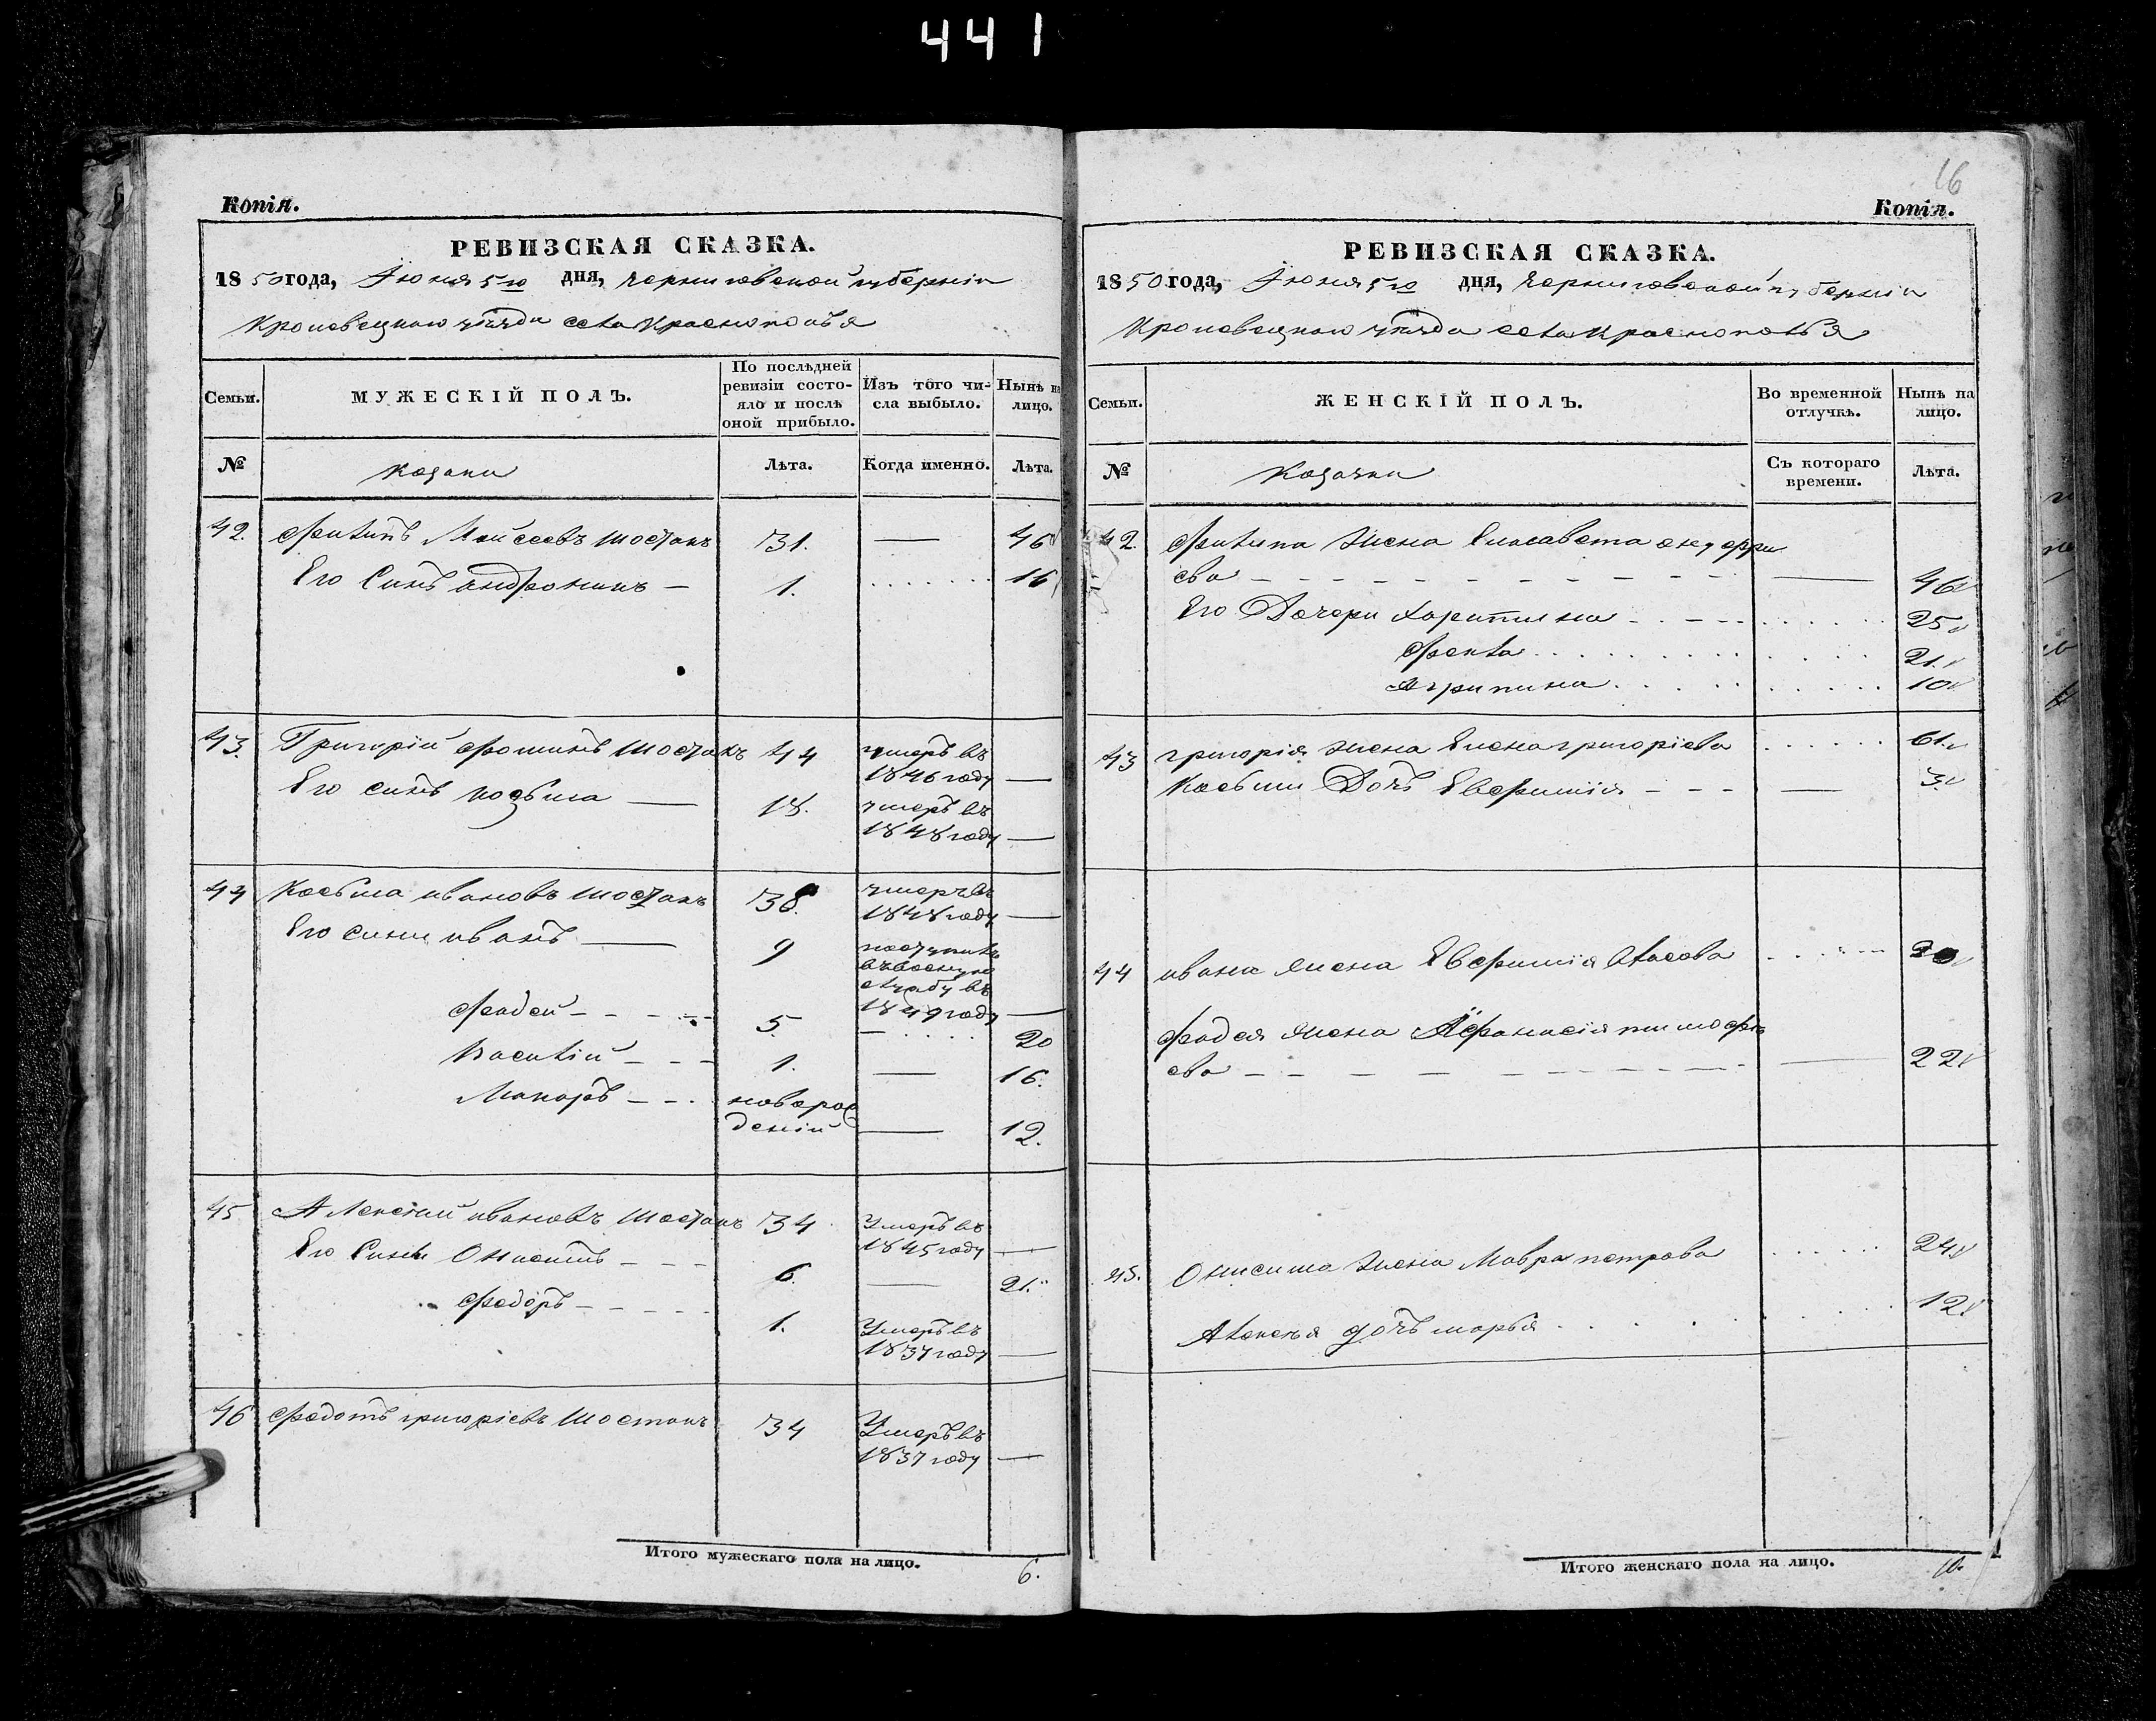 441
Копія.
РЕВИЗСКАЯ СКАЗКА.
1850 года, Іюня 5го дня, Черниговской губерніи
Кролевецкаго уѣзда села Краснополья
Семьи. МУЖЕСКІЙ ПОЛЪ. По послѣдней ревизіи состояло и послѣ оной прибыло. Изъ того числа выбыло. Нынѣ на лицо.
№ Козаки Лѣта. Когда именно. Лѣта.
42. Филипъ Мойсеевъ Шостакъ 31. — 46
Его Синъ Андроникъ — 1. ....... 16
43. Григорій Фоминъ Шостакъ 44 умеръ въ
1846 году —
Его синъ Козьма — 18. умеръ въ
1848 году —
44 Косьма ивановъ Шостакъ 38. умеръ въ
1848 году —
Его сини иванъ — 9 поступилъ
въ военную
службу въ
1849 году —
Фадей - - - - 5. — .... 20
Василій - - - 1. — 16.
Макаръ - - . новорож
деній — 12.
45 Алексій ивановъ Шостакъ 34 Умеръ въ
1845 году —
Его Сини Онисимъ - - - 6. — 21.
Федоръ - - - - - 1. Умеръ въ
1837 году —
46 Федотъ григоріевъ Шостакъ 34 Умеръ въ
1837 году —
Итого мужескаго пола на лицо. 6.
16
Копія.
РЕВИЗСКАЯ СКАЗКА.
1850 года, Іюня 5го дня, Черниговской губерніи
Кролевецкаго уѣзда села Краснополья
Семьи. ЖЕНСКІЙ ПОЛЪ. Во временной отлучкѣ. Нынѣ на лицо.
№ Козачки Съ котораго времени. Лѣта.
42. Филипа жена Елисавета
ева - - - - - - - - - — 46
Его Дочери Харитина - . - - - ...... 25
Фекла . . . . . . . . . . . 21.
Агрипина . . . . . . . . . 10
43 григорія жена Елена григоріева ...... 61.
Косьми Дочь Евфимія - - - — 3.
44 ивана жена Евфимія Власова ...... 20
Фадея жена Афанасія тимофѣ
ева - - - - - - - - - — 22
45. Онисима жена Мавра петрова ...... 24
Алексѣя дочь марья . . . . . . . 12.
Итого женскаго пола на лицо. 10.